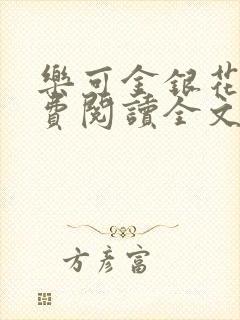 樂可金銀花
費閱讀全文
方彥富